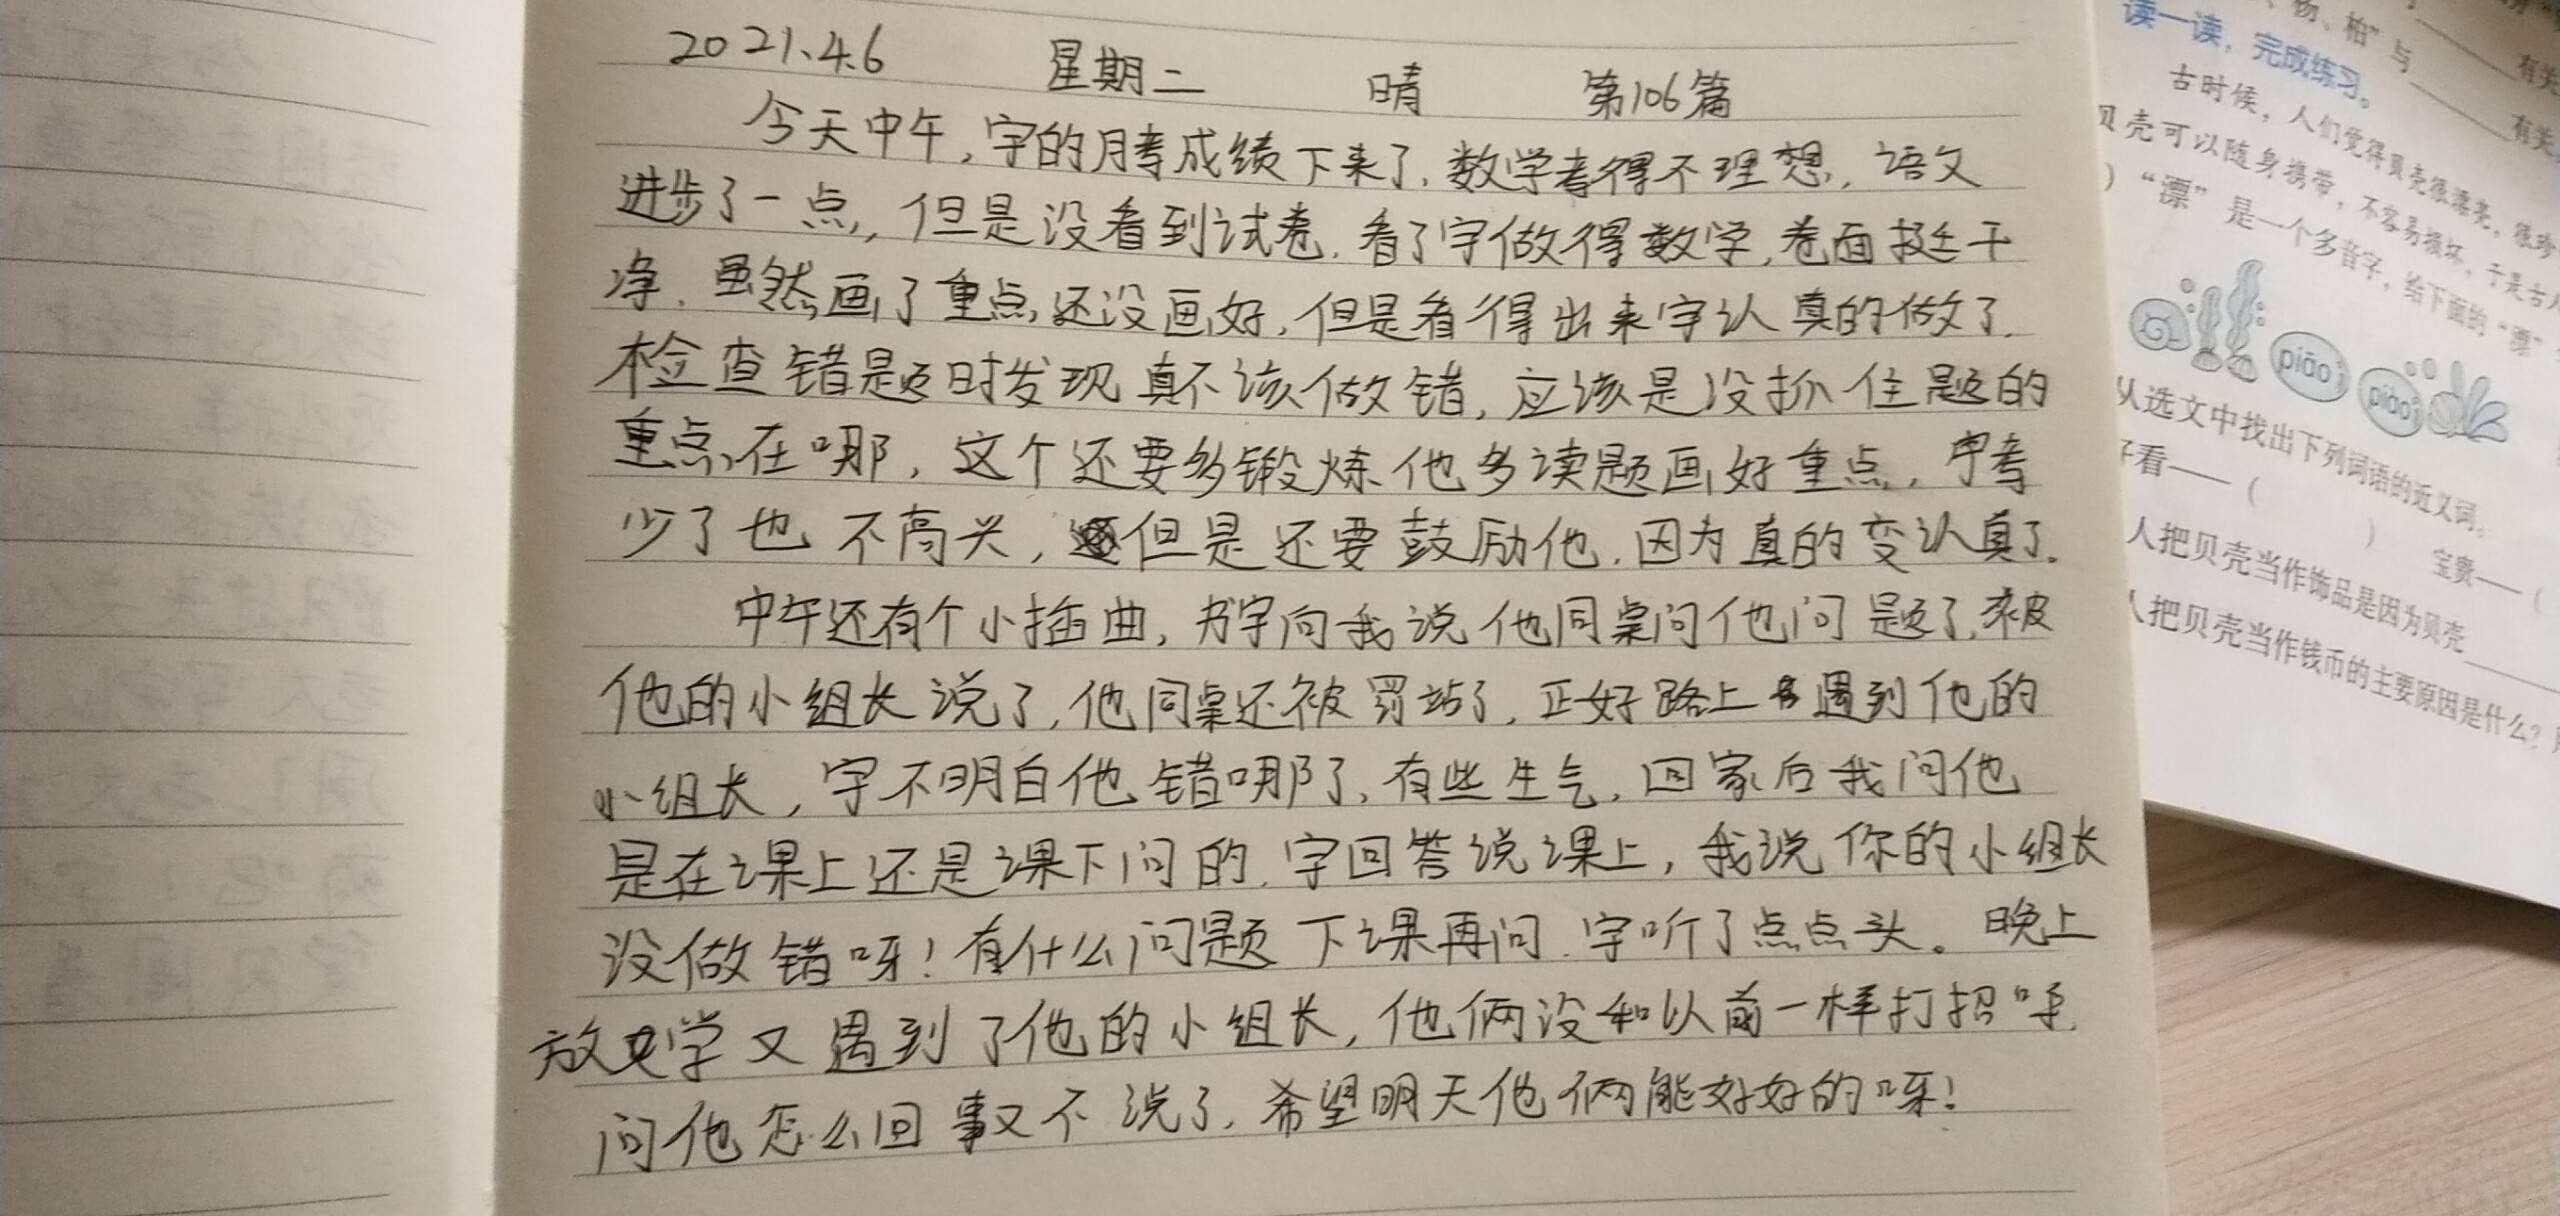 2021.4.6 星期二 晴 第106篇
今天中午,宇的月考成绩下来了,数学考得不理想,语文
进步了一点,但是没看到试卷,看了宇做得数学,卷面挺干
净,虽然画了重点还没画好,但是看得出来宇认真的做了,
检查错题时发现真不该做错,应该是没抓住题的
重点在哪,这个还要多锻炼他多读题画好重点,宇考
少了也不高兴,但是还要鼓励他,因为真的变认真了。
中午还有个小插曲,宇向我说他同桌问他问题了,被
他的小组长说了,他同桌还被罚站了,正好路上遇到他的
小组长,宇不明白他错哪了,有些生气,回家后我问他
是在课上还是课下问的,宇回答说课上,我说你的小组长
没做错呀!有什么问题下课再问,宇听了点点头。晚上
放学又遇到了他的小组长,他俩没和以前一样打招呼,
问他怎么回事又不说了,希望明天他俩能好好的呀!
、杨、柏”与 有关
有关
读一读,完成练习。
古时候,人们觉得贝壳很漂亮,很珍
贝壳可以随身携带,不容易损坏,于是古人
)“漂”是一个多音字,给下面的“漂”
piāo
piào
从选文中找出下列词语的近义词。
好看——( ) 宝贵——(
人把贝壳当作饰品是因为贝壳
人把贝壳当作钱币的主要原因是什么?